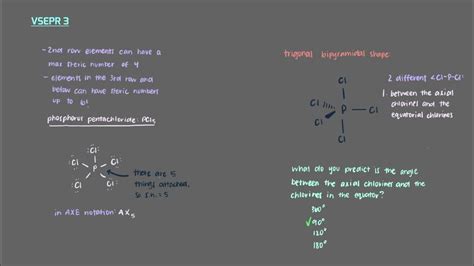 VSEPR 3
- 2nd row elements can have a
max steric number of 4
- elements in the 3rd row and
below can have steric numbers
up to 6!
phosphorus pentachloride: PCl₅
Cl
Cl
Cl
P
Cl
Cl
there are 5
things attached,
so s.n. = 5
in AXE notation: AX₅
trigonal bipyramidal shape
Cl
Cl
P
Cl
Cl
Cl
2 different <Cl-P-Cl
1. between the axial
chlorines and the
equatorial chlorines
what do you predict is the angle
between the axial chlorines and the
chlorines in the equator?
✓90°
120°
180°